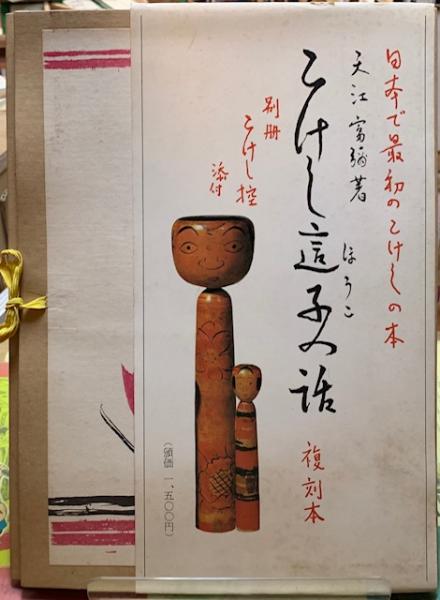 日本で最初のこけしの本
天江富彌著
ほうこ
こけし這子の話
復刻本
別冊
こけし控
添付
(頒価 一、五〇〇円)